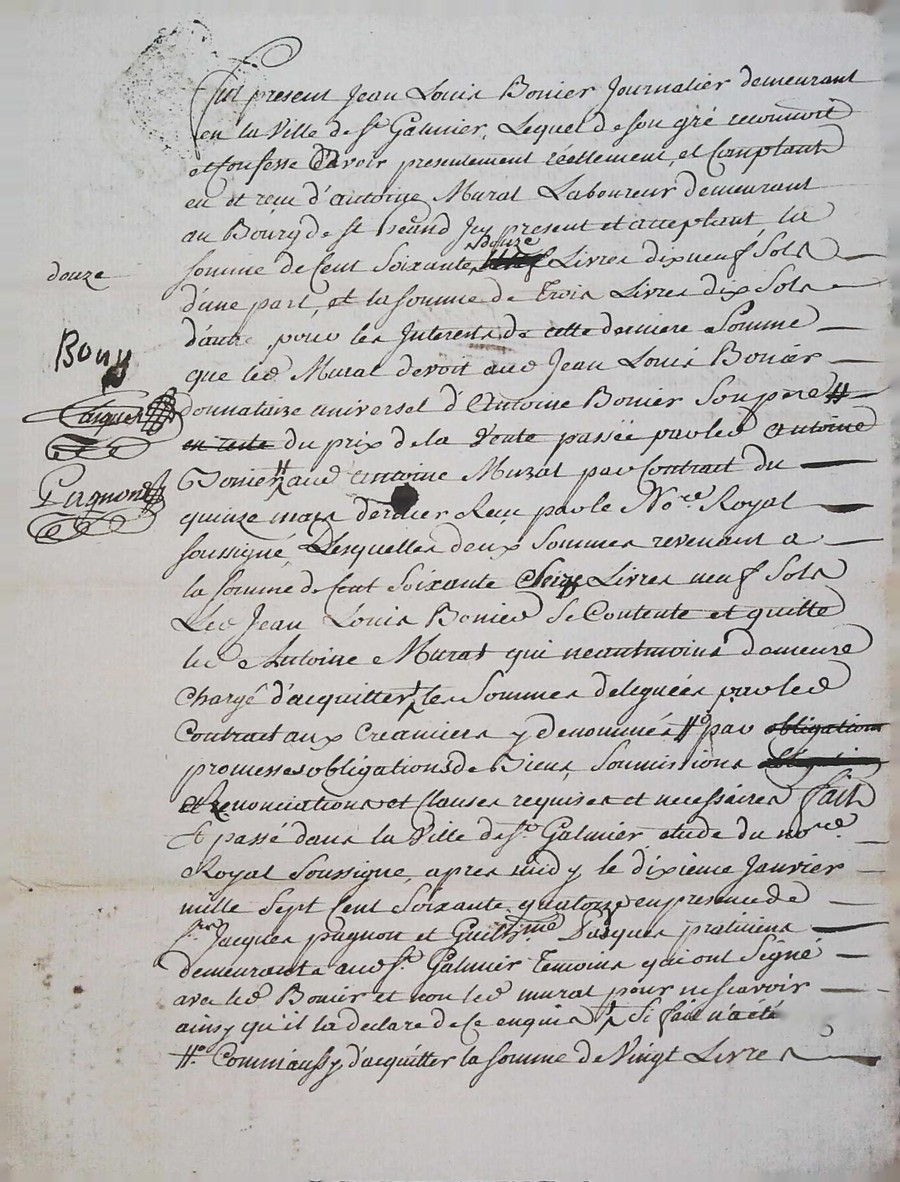 Fut present Jean Louis Bonier Journalier demeurant
en la Ville de St Galmier, Lequel de son gré reconnoit
et Confesse d'avoir presentement réellement, et Comptant
eu et reçu d'antoine Murat Laboureur demeurant
au Bourg de st héand Jcy present et acceptant, la
douze
douze
somme de Cent Soixante Livres dix neuf Sols
d'une part, et la somme de Trois Livres dix Sols
d'autre pour les Interets de cette derniere Somme
Bony
que led Murat devoit aud Jean Louis Bonier
donnataire universel d'Antoine Bonier Son pere #
en reste du prix de la Vente passée par led antoine
Bonier aud antoine Murat par Contrat du
quinze mars dernier Reçu par le Nore Royal
soussigné, Lesquelles deux Sommes revenant a
la somme de Cent Soixante Seize Livres neuf Sols
Led Jean Louis Bonier Se Contente et quitte
led Antoine Murat qui neantmoins demeure
Chargé d'acquitter les Sommes deleguées par led
Contrat aux Creanciers y denommés #° par obligations
promesses obligations de Biens, Soumissions
et renonciations et Clauses requises et necessaires fait
et passé dans la Ville de St Galmier etude du nore
Royal Soussigné, apres midy le dixieme Janvier
mille Sept Cent Soixante quatorze en presence de
Jacques pagnon et Pasques praticiens
demeurants aud St Galmier Temoins qui ont Signé
avec led Bonier et non led murat pour ne scavoir
ainsy qu'il la declaré de ce enquis Si fait n'a été
#° Comm'aussy d'acquitter la somme de Vingt Livres